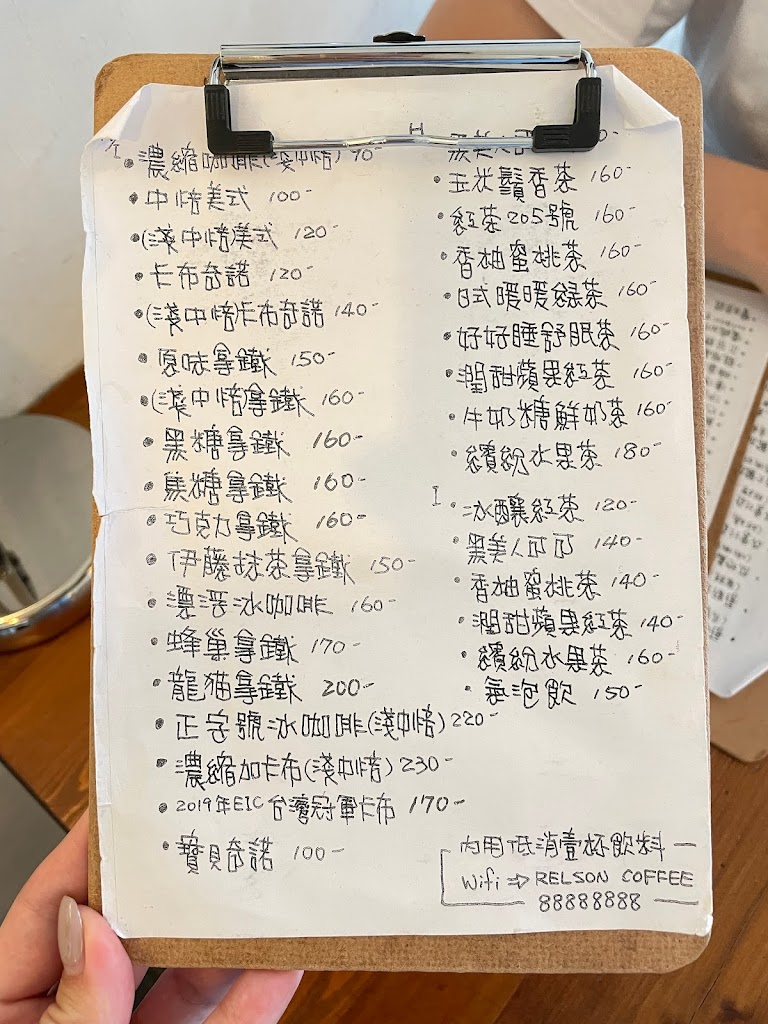 濃縮咖啡(淺中焙) 90-
中焙美式 100-
(淺中焙)美式 120-
卡布奇諾 120-
(淺中焙)卡布奇諾 140-
原味拿鐵 150-
(淺中焙)拿鐵 160-
黑糖拿鐵 160-
焦糖拿鐵 160-
巧克力拿鐵 160-
伊藤抹茶拿鐵 150-
漂浮冰咖啡 160-
蜂巢拿鐵 170-
龍貓拿鐵 200-
正字號冰咖啡(淺中焙) 220-
濃縮加卡布(淺中焙) 230-
2019年EIC台灣冠軍卡布 170-
寶貝奇諾 100-
H
玉米鬚香茶 160-
紅茶205號 160-
香柚蜜桃茶 160-
日式暖暖綠茶 160-
好好睡舒眠茶 160-
潤甜蘋果紅茶 160-
牛奶糖鮮奶茶 160-
繽紛水果茶 180-
I
冰釀紅茶 120-
黑美人ㄇㄇ 140-
香柚蜜桃茶 140-
潤甜蘋果紅茶 140-
繽紛水果茶 160-
氣泡飲 150-
內用低消壹杯飲料
Wifi ⇒ RELSON COFFEE
88888888